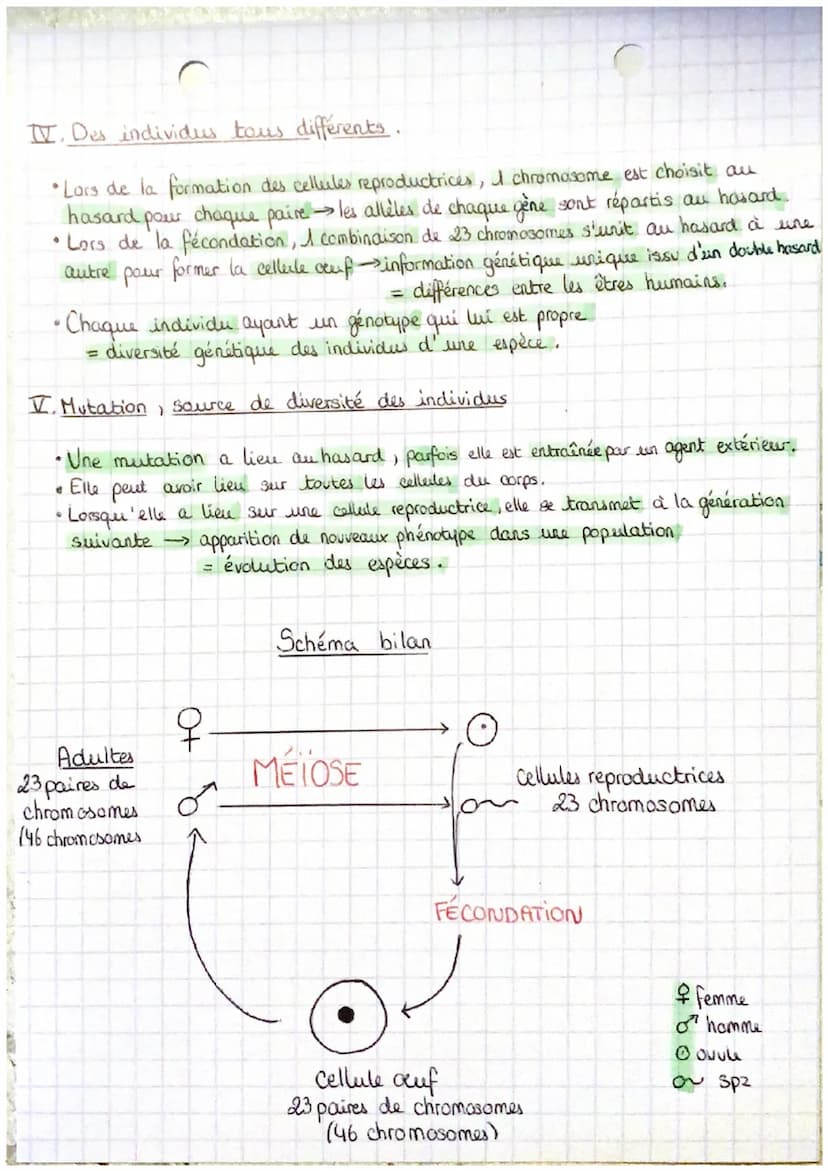 IV. Des individus tous différents.
• Lors de la formation des cellules reproductrices, 1 chromosome est choisit au
hasard pour chaque paire → les allèles de chaque gène sont répartis au hasard.
• Lors de la fécondation, 1 combinaison de 23 chromosomes s'unit au hasard à une
autre pour former la cellule œuf → information génétique unique issu d'un double hasard
= différences entre les êtres humains.
• Chaque individu ayant un génotype qui lui est propre
= diversité génétique des individus d'une espèce.
V. Mutation, source de diversité des individus
• Une mutation a lieu au hasard, parfois elle est entraînée par un agent extérieur.
• Elle peut avoir lieu sur toutes les cellules du corps.
• Lorsqu'elle a lieu sur une cellule reproductrice, elle se transmet à la génération
suivante → apparition de nouveaux phénotype dans une population
= évolution des espèces.
Schéma bilan
♀
Adultes
23 paires de
chromosomes
(46 chromosomes
♂
MÉÏOSE
Cellules reproductrices
23 chromosomes
FÉCONDATION
Cellule œuf
23 paires de chromosomes
(46 chromosomes)
♀ femme
♂ homme
ovule
spz